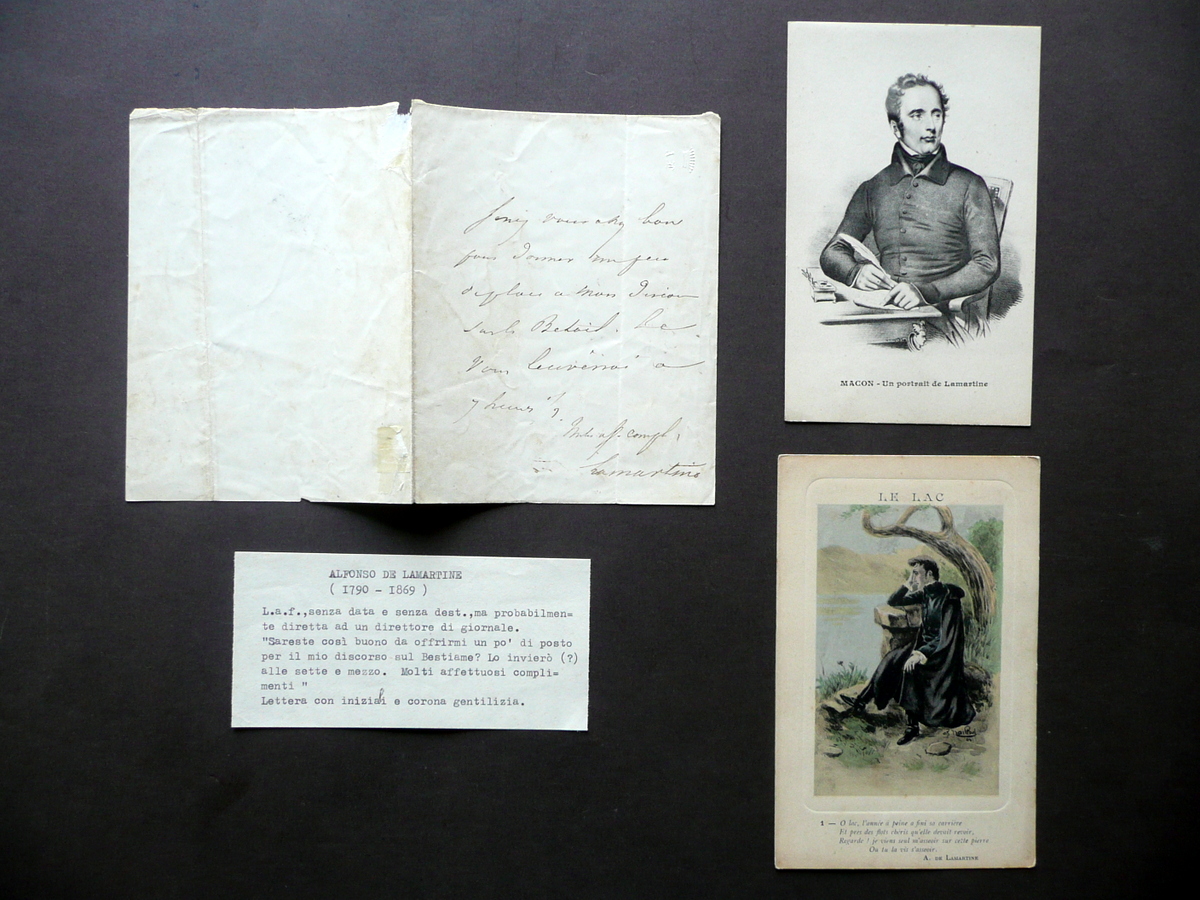 bon
pour donner un peu
de place a mon
sur le Betail. 
vous a
7 heures ½
Mille aff. compl.
Lamartine
MACON - Un portrait de Lamartine
ALFONSO DE LAMARTINE
( 1790 - 1869 )
L.a.f.,senza data e senza dest.,ma probabilmen-
te diretta ad un direttore di giornale.
"Sareste così buono da offrirmi un po' di posto
per il mio discorso sul Bestiame? Lo invierò (?)
alle sette e mezzo. Molti affettuosi compli-
menti "
Lettera con iniziali e corona gentilizia.
LE LAC
1 — O lac, l'année à peine a fini sa carrière
Et près des flots chéris qu'elle devait revoir,
Regarde ! je viens seul m'asseoir sur cette pierre
Où tu la vis s'asseoir.
A. DE LAMARTINE